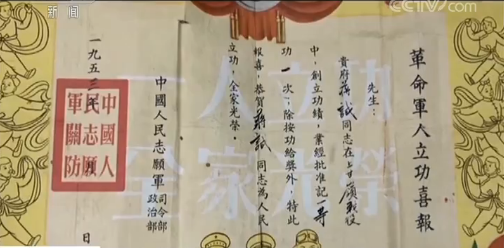 新闻
CCTV.com
革命軍人立功喜報
先生：
貴府蔣誠同志在上甘嶺戰役
中，創立功績，業經批准記一等
功一次；除按功給獎外，特此
報喜，恭賀蔣誠同志為人民
立功，全家光榮。
中國人民志願軍司令部
政治部
一九五三年
日
中國人
民志願
軍關防
一人立功
全家光榮